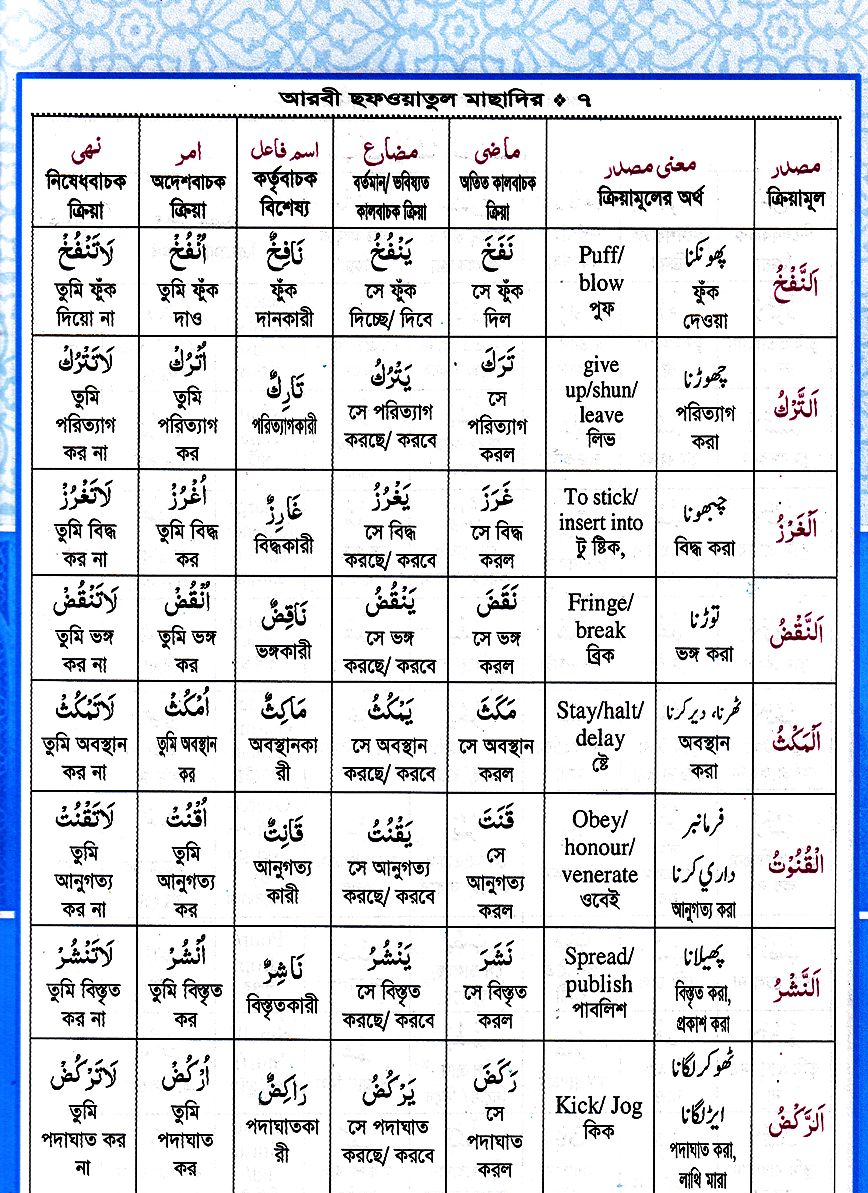 আরবী ছফওয়াতুল মাছাদির ❖ ৭
مصدر
ক্রিয়ামূল
معنی مصدر
ক্রিয়ামূলের অর্থ
ماضی
অতিত কালবাচক
ক্রিয়া
مضارع
বর্তমান/ ভবিষ্যত
কালবাচক ক্রিয়া
اسم فاعل
কর্তৃবাচক
বিশেষ্য
امر
অদেশবাচক
ক্রিয়া
نهی
নিষেধবাচক
ক্রিয়া
اَلنَّفْخُ
پھونکنا
ফুঁক
দেওয়া
Puff/
blow
পুফ
نَفَخَ
সে ফুঁক
দিল
يَنْفُخُ
সে ফুঁক
দিচ্ছে/ দিবে
نَافِخٌ
ফুঁক
দানকারী
اُنْفُخْ
তুমি ফুঁক
দাও
لَاتَنْفُخْ
তুমি ফুঁক
দিয়ো না
اَلتَّرْكُ
چھوڑنا
পরিত্যাগ
করা
give
up/shun/
leave
লিভ
تَرَكَ
সে
পরিত্যাগ
করল
يَتْرُكُ
সে পরিত্যাগ
করছে/ করবে
تَارِكٌ
পরিত্যাগকারী
اُتْرُكْ
তুমি
পরিত্যাগ
কর
لَاتَتْرُكْ
তুমি
পরিত্যাগ
কর না
اَلْغَرْزُ
چبھونا
বিদ্ধ করা
To stick/
insert into
টু ষ্টিক,
غَرَزَ
সে বিদ্ধ
করল
يَغْرُزُ
সে বিদ্ধ
করছে/ করবে
غَارِزٌ
বিদ্ধকারী
اُغْرُزْ
তুমি বিদ্ধ
কর
لَاتَغْرُزْ
তুমি বিদ্ধ
কর না
اَلنَّقْضُ
توڑنا
ভঙ্গ করা
Fringe/
break
ব্রিক
نَقَضَ
সে ভঙ্গ
করল
يَنْقُضُ
সে ভঙ্গ
করছে/ করবে
نَاقِضٌ
ভঙ্গকারী
اُنْقُضْ
তুমি ভঙ্গ
কর
لَاتَنْقُضْ
তুমি ভঙ্গ
কর না
اَلْمَكْثُ
ٹھرنا، دیر کرنا
অবস্থান
করা
Stay/halt/
delay
ষ্টে
مَكَثَ
সে অবস্থান
করল
يَمْكُثُ
সে অবস্থান
করছে/ করবে
مَاكِثٌ
অবস্থানকা
রী
اُمْكُثْ
তুমি অবস্থান
কর
لَاتَمْكُثْ
তুমি অবস্থান
কর না
اَلْقُنُوْتُ
فرمانبر
داري کرنا
আনুগত্য করা
Obey/
honour/
venerate
ওবেই
قَنَتَ
সে
আনুগত্য
করল
يَقْنُتُ
সে আনুগত্য
করছে/ করবে
قَانِتٌ
আনুগত্য
কারী
اُقْنُتْ
তুমি
আনুগত্য
কর
لَاتَقْنُتْ
তুমি
আনুগত্য
কর না
اَلنَّشْرُ
پھیلانا
বিস্তৃত করা,
প্রকাশ করা
Spread/
publish
পাবলিশ
نَشَرَ
সে বিস্তৃত
করল
يَنْشُرُ
সে বিস্তৃত
করছে/ করবে
نَاشِرٌ
বিস্তৃতকারী
اُنْشُرْ
তুমি বিস্তৃত
কর
لَاتَنْشُرْ
তুমি বিস্তৃত
কর না
اَلرَّكْضُ
ٹھوکر لگانا
ایڑ لگانا
পদাঘাত করা,
লাথি মারা
Kick/ Jog
কিক
رَكَضَ
সে
পদাঘাত
করল
يَرْكُضُ
সে পদাঘাত
করছে/ করবে
رَاكِضٌ
পদাঘাতকা
রী
اُرْكُضْ
তুমি
পদাঘাত
কর
لَاتَرْكُضْ
তুমি
পদাঘাত কর
না